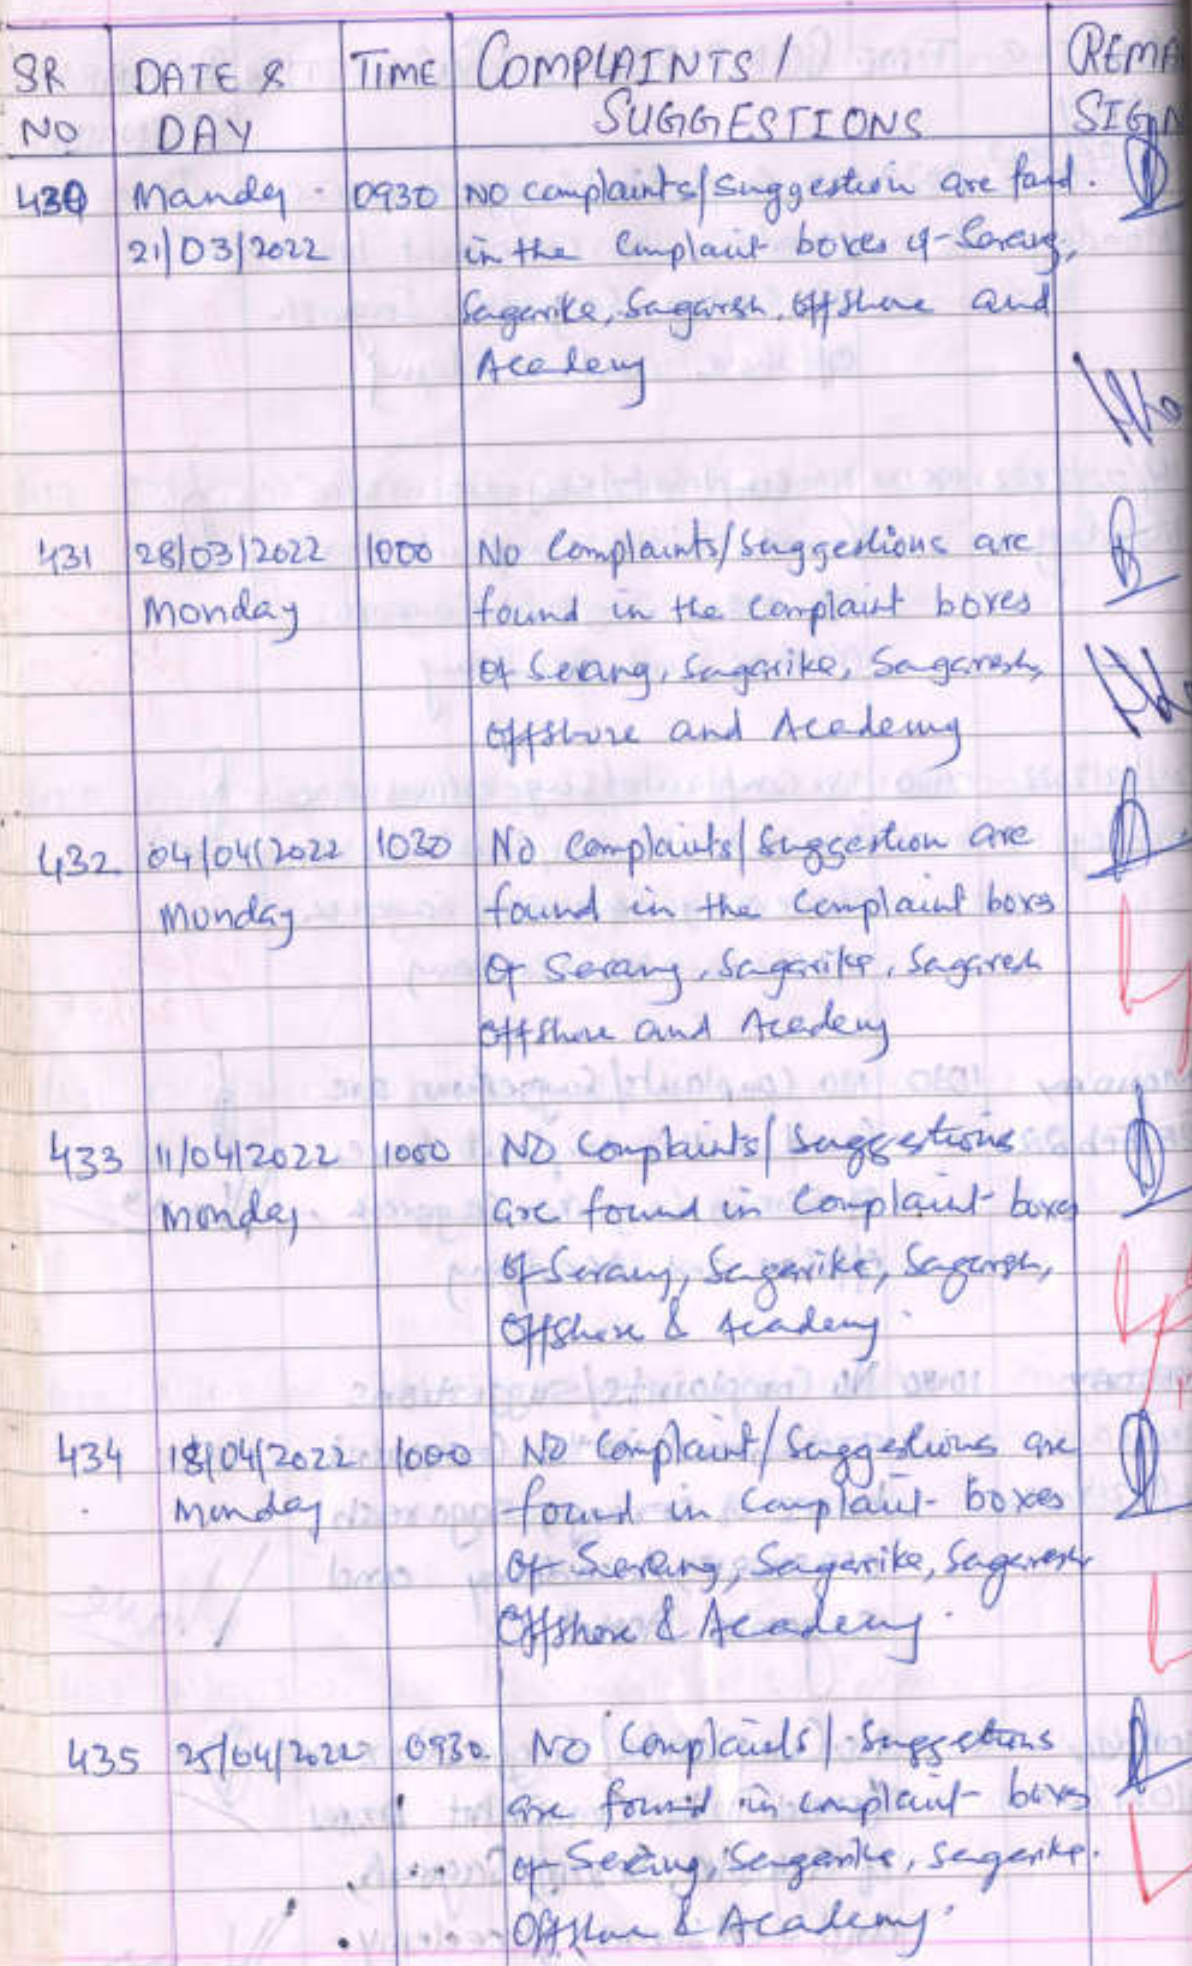 SR NO DATE & DAY TIME COMPLAINTS / SUGGESTIONS REMA SIGN
430 Monday 0930 NO complaints/suggestion are fond.
21/03/2022 in the Complaint boxes of Serang,
Sagarike, Sagarsh, Offshore and
Academy
431 28/03/2022 1000 No Complaints/Suggestions are
Monday found in the Complaint boxes
of Serang, Sagarike, Sagaresh,
Offshore and Academy
432 04/04/2022 1030 No Complaints/Suggestion are
Monday found in the Complaint boxs
of Serang, Sagarike, Sagaresh
Offshore and Academy
433 11/04/2022 1000 NO Complaints/Suggestions
Monday are found in Complaint boxes
of Serang, Sagarike, Sagarsh,
Offshore & Academy.
434 18/04/2022 1000 NO Complaint/Suggestions are
Monday found in Complaint boxes
of Serang, Sagarike, Sagaresh
Offshore & Academy.
435 25/04/2022 0930. NO Complaints/Suggestions
are found in complaint boxes
of Serang Sagarike, Sagarike.
Offshore & Academy.